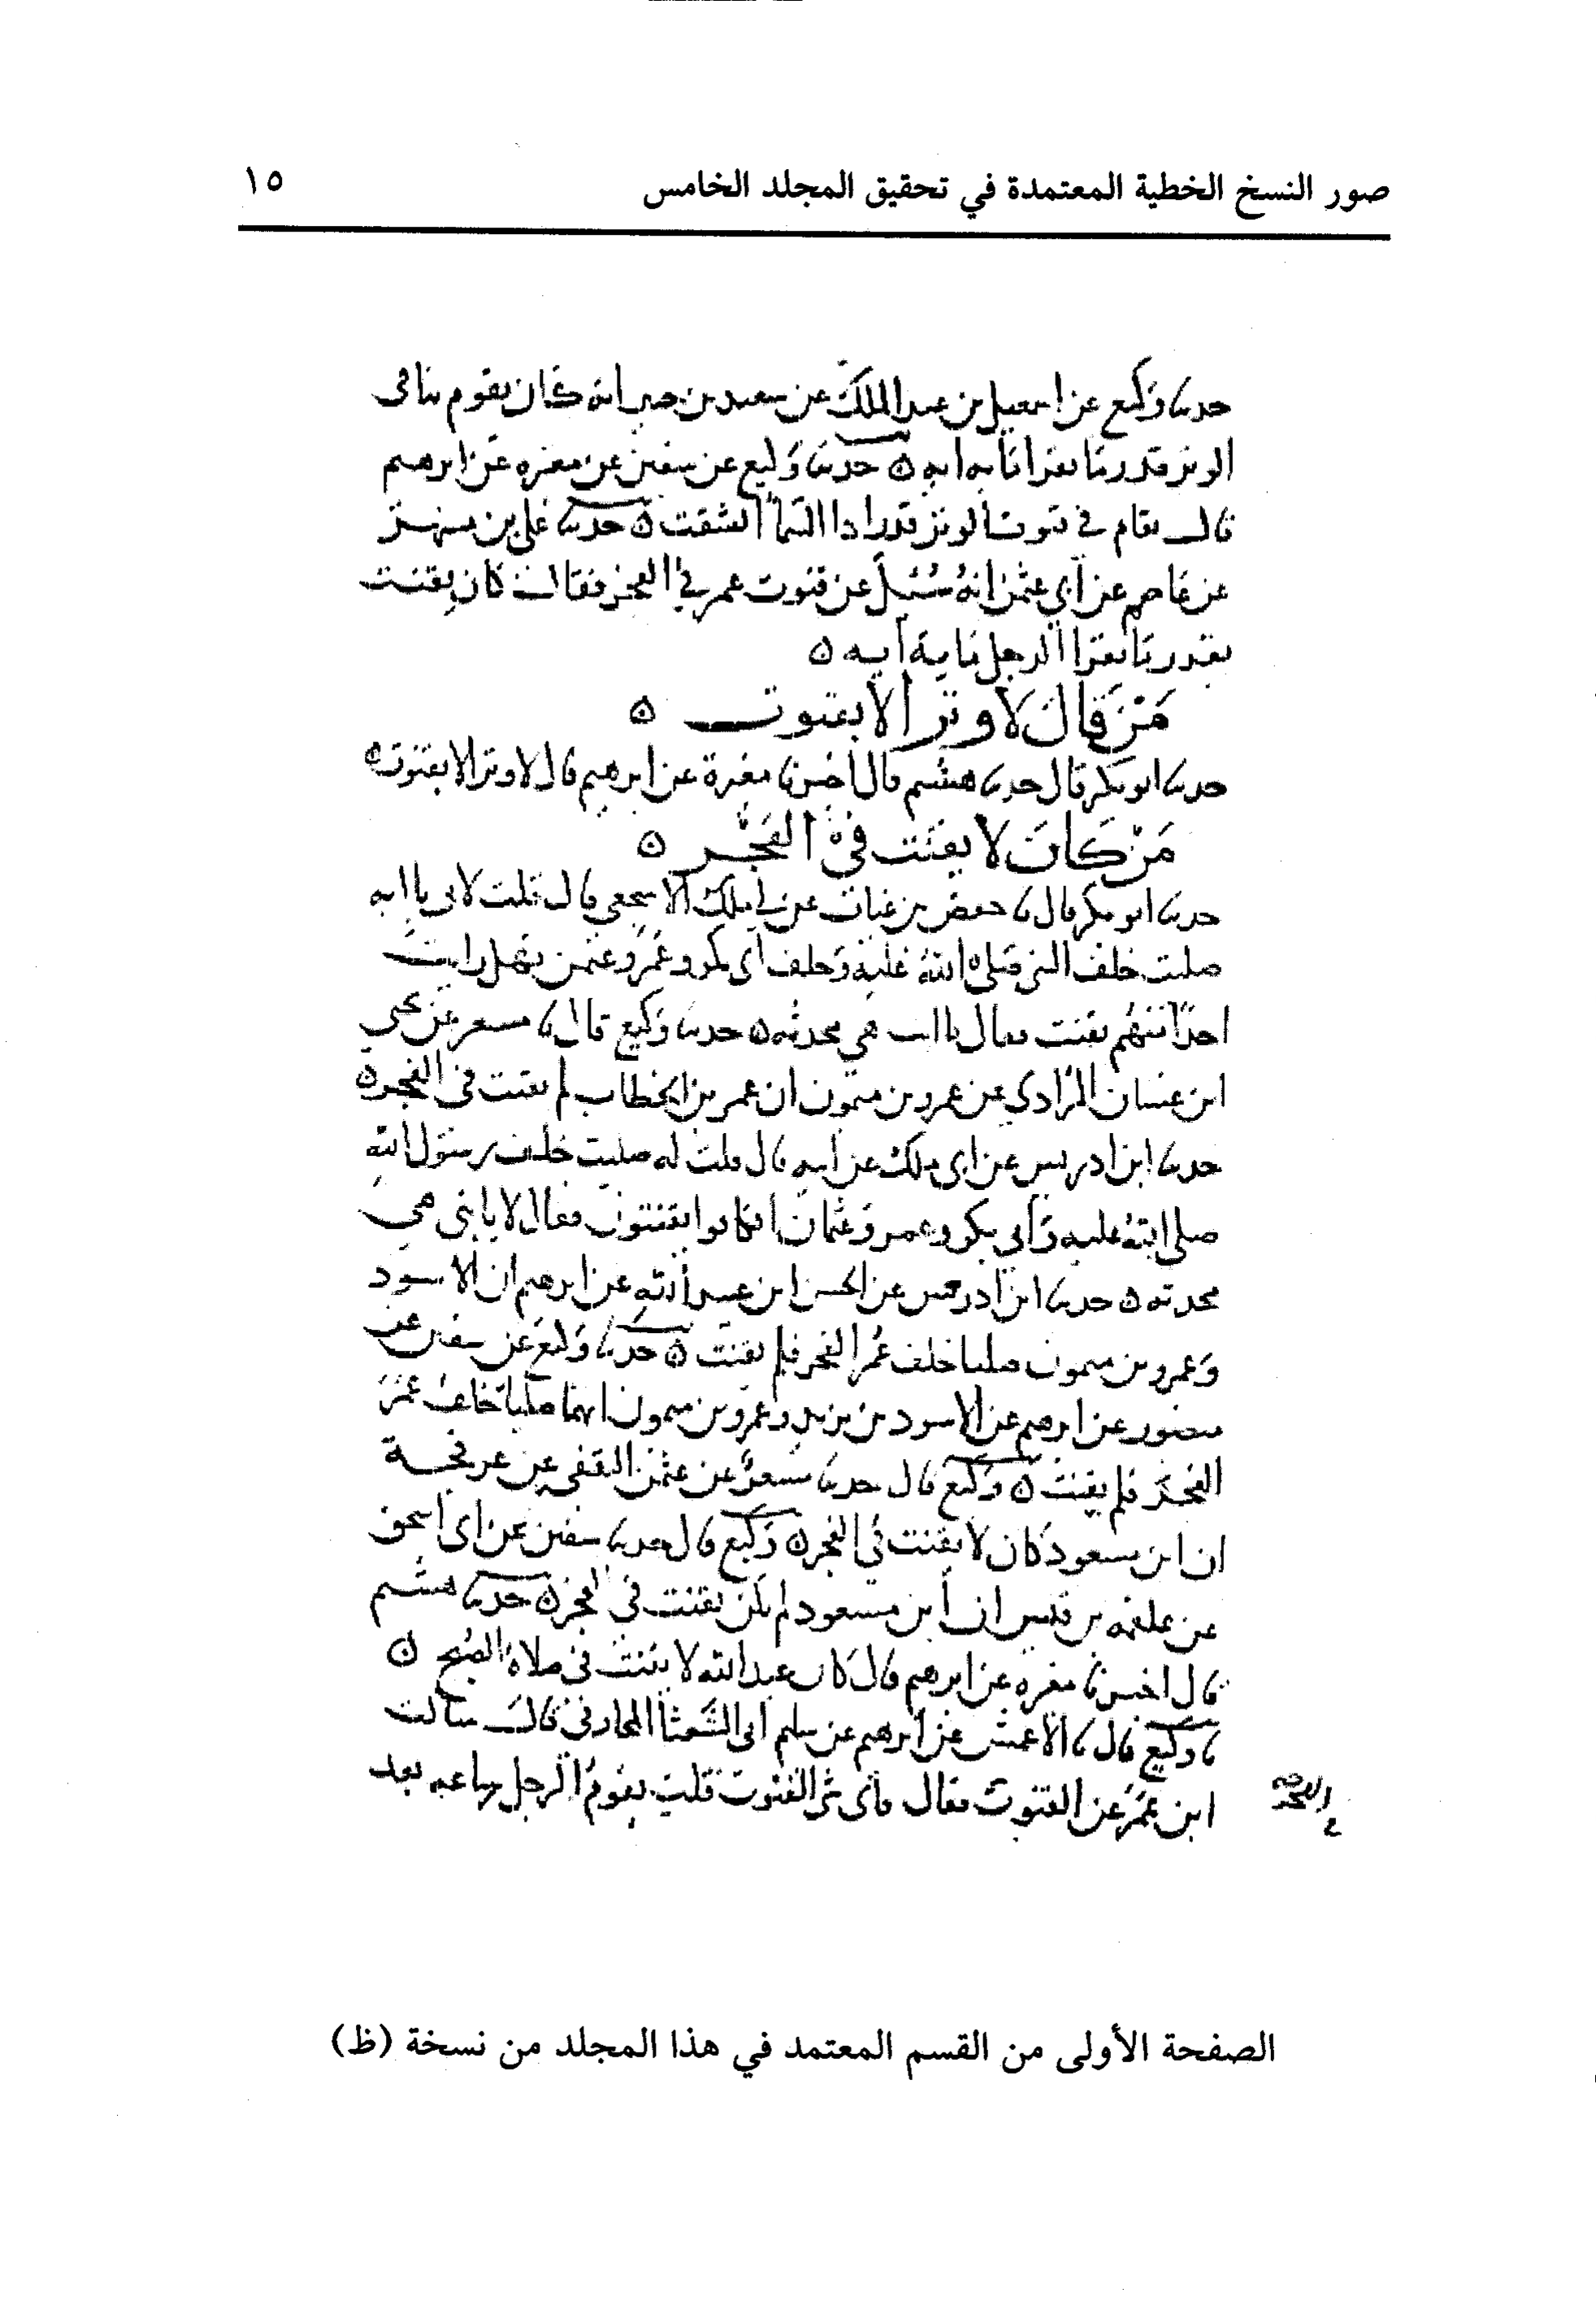 صور النسخ الخطية المعتمدة في تحقيق المجلد الخامس
١٥
حدثنا وكيع عن اسمعيل بن عبد الملك عن سعيد بن جبير انه كان يقوم بنا في
الوتر قدر ما يقرا مايه ايه ه حدثنا وكيع عن سفين عن مغيره عن ابرهيم
قال يقام في قنوت الوتر قدر اذا السماء انشقت ه حدثنا علي بن مسهر
عن عاصم عن أبي عثمن انه سئل عن قنوت عمر في الفجر فقال كان يقنت
بقدر ما يقرا الرجل ماية آيه ه
من قال لا وتر الا بقنوت ه
حدثنا ابو بكر قال حدثنا هشيم قال أخبرنا مغيرة عن ابرهيم قال لا وتر الا بقنوت ه
من كان لا يقنت في الفجر ه
حدثنا ابو بكر قال نا حفص بن غياث عن ابي ملك الاشجعي قال قلت لابي يا ابه
صليت خلف النبي صلى الله عليه وخلف أبي بكر وعمر وعثمن فهل رايت
احدا منهم يقنت فقال يا بني هي محدثه ه حدثنا وكيع قال نا مسعر عن يحيى
ابن غسان المرادي عن عمرو بن ميمون ان عمر بن الخطاب لم يقنت في الفجر ه
حدثنا ابن ادريس عن ابي ملك عن أبيه قال قلت له صليت خلف رسول الله
صلى الله عليه وأبي بكر وعمر وعثمان افكانوا يقنتون فقال لا يا بني هي
محدثه ه حدثنا ابن ادريس عن الحسن ابن عبيد الله عن ابرهيم ان الاسود
وعمرو بن ميمون صليا خلف عمر الفجر فلم يقنت ه حدثنا وكيع عن سفين عن
منصور عن ابرهيم عن الاسود بن يزيد وعمرو بن ميمون انهما صليا خلف عمر
الفجر فلم يقنت ه وكيع قال حدثنا مسعر عن عثمن الثقفي عن عرفجة
ان ابن مسعود كان لا يقنت في الفجر ه وكيع قال حدثنا سفين عن ابي اسحق
عن علقمه بن قيس ان أبن مسعود لم يكن يقنت في الفجر ه حدثنا هشيم
قال اخبرنا مغيره عن ابرهيم قال كان عبد الله لا يقنت في صلاة الصبح ه
نا وكيع قال نا الاعمش عن ابرهيم عن سليم ابي الشعثا المحاربي قال سالت
ابن عمر عن القنوت فقال فأي شي القنوت قلت يقوم الرجل ساعه بعد
الصفحة الأولى من القسم المعتمد في هذا المجلد من نسخة (ظ)